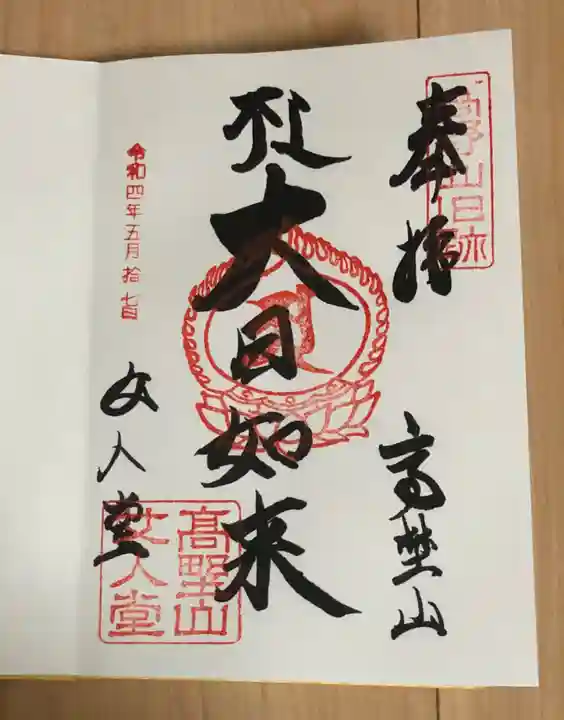 奉拝
高野山
高野山旧跡
大日如来
令和四年五月拾七日
女人堂
高野山
女人堂